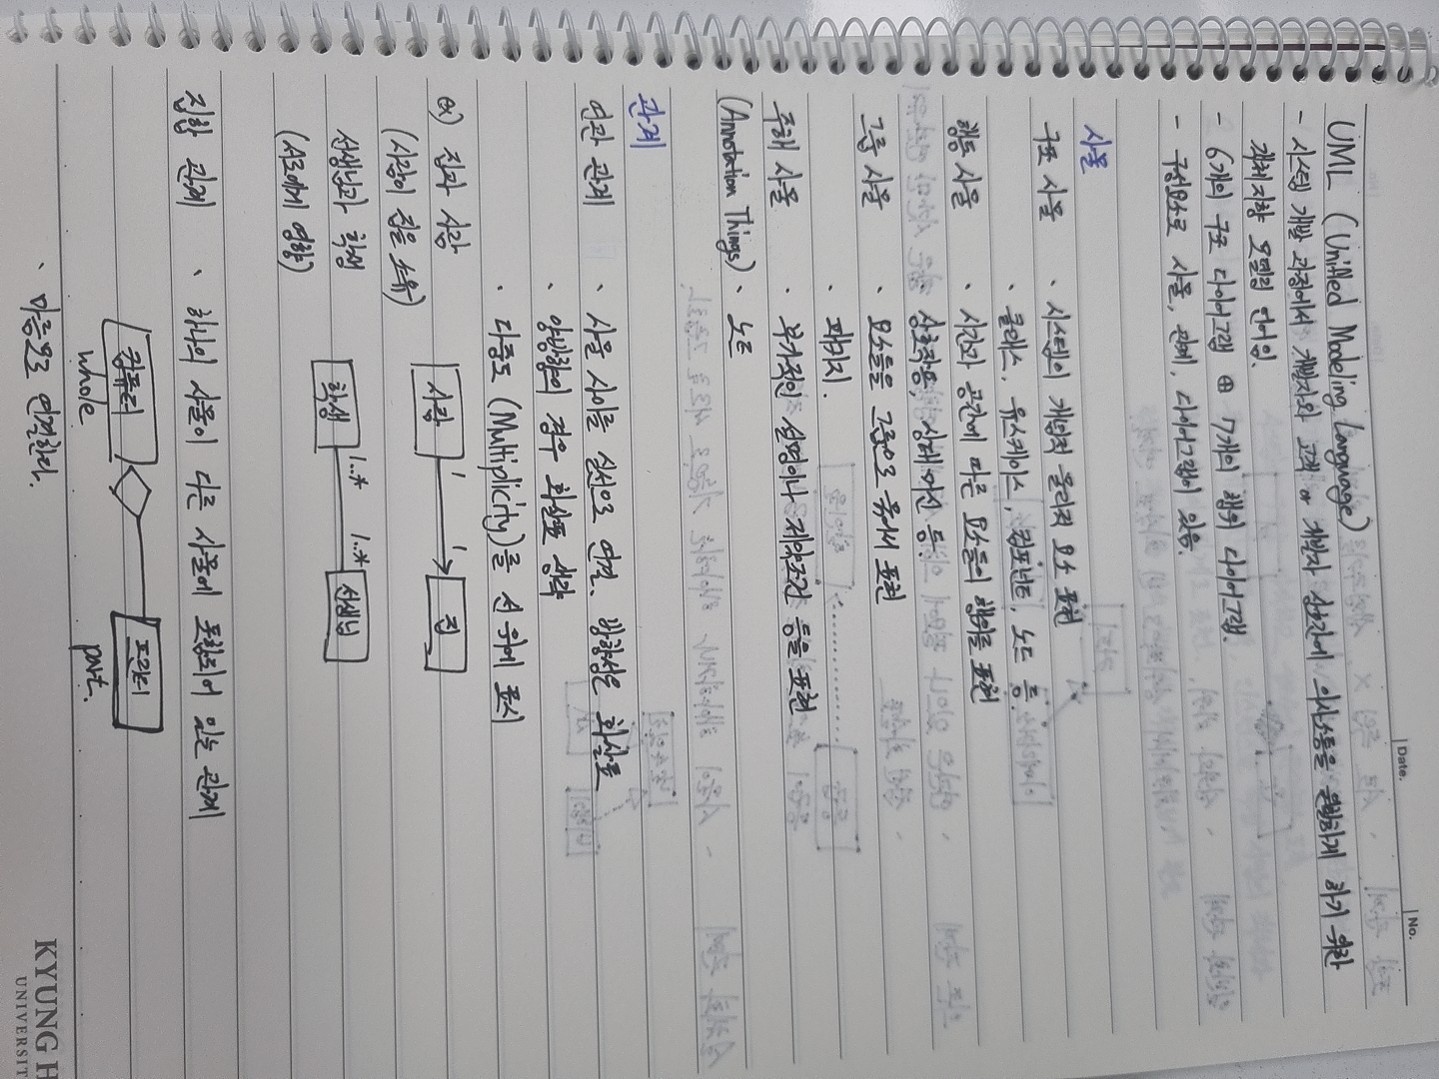 Date.
No.
UML (Unified Modeling Language)
- 시스템 개발 과정에서 개발자와 고객 or 개발자 상호간에 의사소통을 원활하게 하기 위한
객체지향 모델링 언어임.
- 6개의 구조 다이어그램 ⊕ 7개의 행위 다이어그램.
- 구성요소로 사물, 관계, 다이어그램이 있음.
사물
구조 사물 · 시스템의 개념적 물리적 요소 표현
· 클래스, 유스케이스, 컴포넌트, 노드 등
행동 사물 · 시간과 공간에 따른 요소들의 행위를 표현
상호작용, 상태 머신 등.
그룹 사물 · 요소들을 그룹으로 묶어서 표현
· 패키지.
주해 사물 · 부가적인 설명이나 제약조건 등을 표현
(Annotation Things) · 노트
관계
연관 관계 · 사물 사이를 실선으로 연결, 방향성은 화살표
· 양방향의 경우 화살표 생략
· 다중도 (Multiplicity)를 선 위에 표시
ex) 집과 사람
(사람이 집을 소유)
사람 1 1 집
선생님과 학생
(서로에게 영향)
학생 1..* 1..* 선생님
집합 관계 · 하나의 사물이 다른 사물에 포함되어 있는 관계
컴퓨터 프린터
whole part.
· 마름모로 연결한다.
KYUNG H
UNIVERSIT